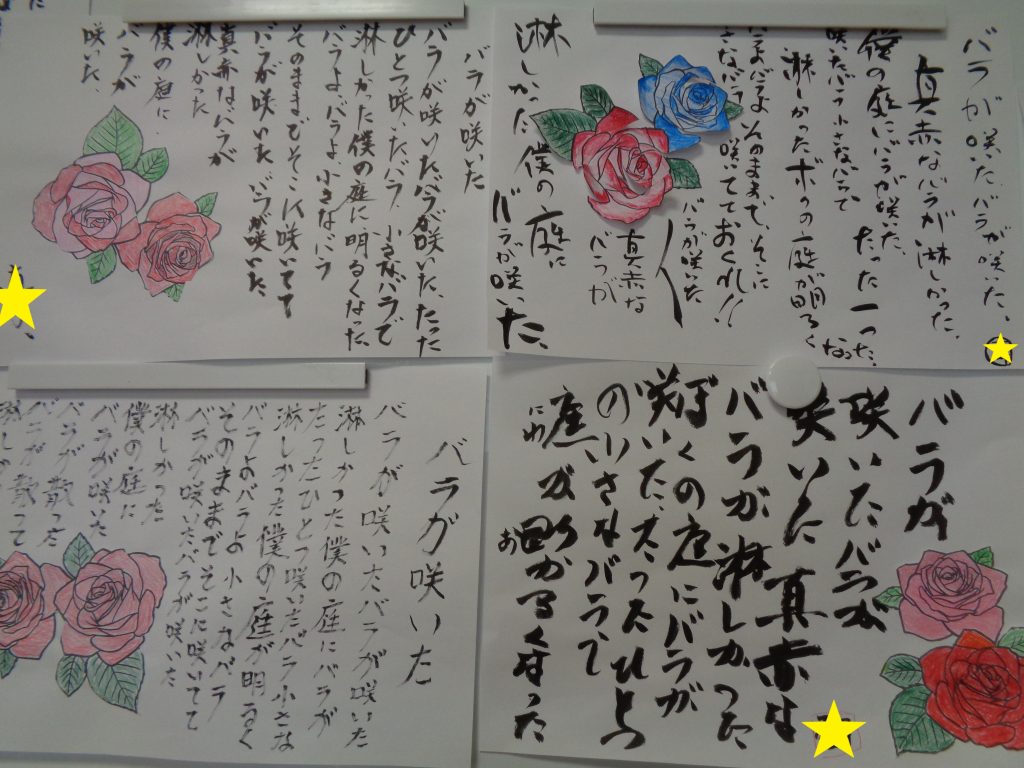 バラが咲いた、バラが咲いた、
真赤なバラが淋しかった、
僕の庭にバラが咲いた、
たった一つ
咲いたバラ小さなバラで
淋しかったボクの庭が明るくなった、
バラよバラよそのままで、そこに
さなバラ
咲いてておくれ!!
バラが咲いた
真赤な
バラが
淋しかった僕の庭に
バラが咲いた、
バラが咲いた
バラが咲いた、バラが咲いた、たった
ひとつ咲いたバラ、小さなバラで
淋しかった僕の庭に明るくなった、
バラよ、バラよ、小さなバラ
そのままでそこに咲いてて
バラが咲いた、バラが咲いた、
真赤なバラが
淋しかった
僕の庭に、
バラが
咲いた、
バラが
咲いたバラが
咲いた真赤な
バラが淋しかった
ぼくの庭にバラが
咲いたたったひとつ
の小さなバラで
庭が明かるくなった
にわ
バラが咲いた
バラが咲いたバラが咲いた
淋しかった僕の庭にバラが
たったひとつ咲いたバラ小さな
淋しかった僕の庭が明るく
バラよバラよ小さなバラ
そのままでそこに咲いてて
バラが咲いたバラが咲いた
淋しかった
僕の庭に
バラが咲いた
バラが散った
バラが散って
淋しか